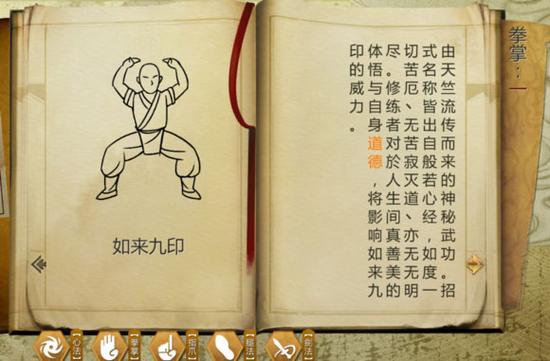 拳掌：一
由天竺流传而来的神秘武功。招
式名称皆出自般若心经，如度一
切苦厄、无苦寂灭道、亦无无明
尽。修练者对於人生间真善美的
体悟与自身道德，将影响如来九
印的威力。
如来九印
【心法】
【拳掌】
【指爪】
【腿法】
【剑法】